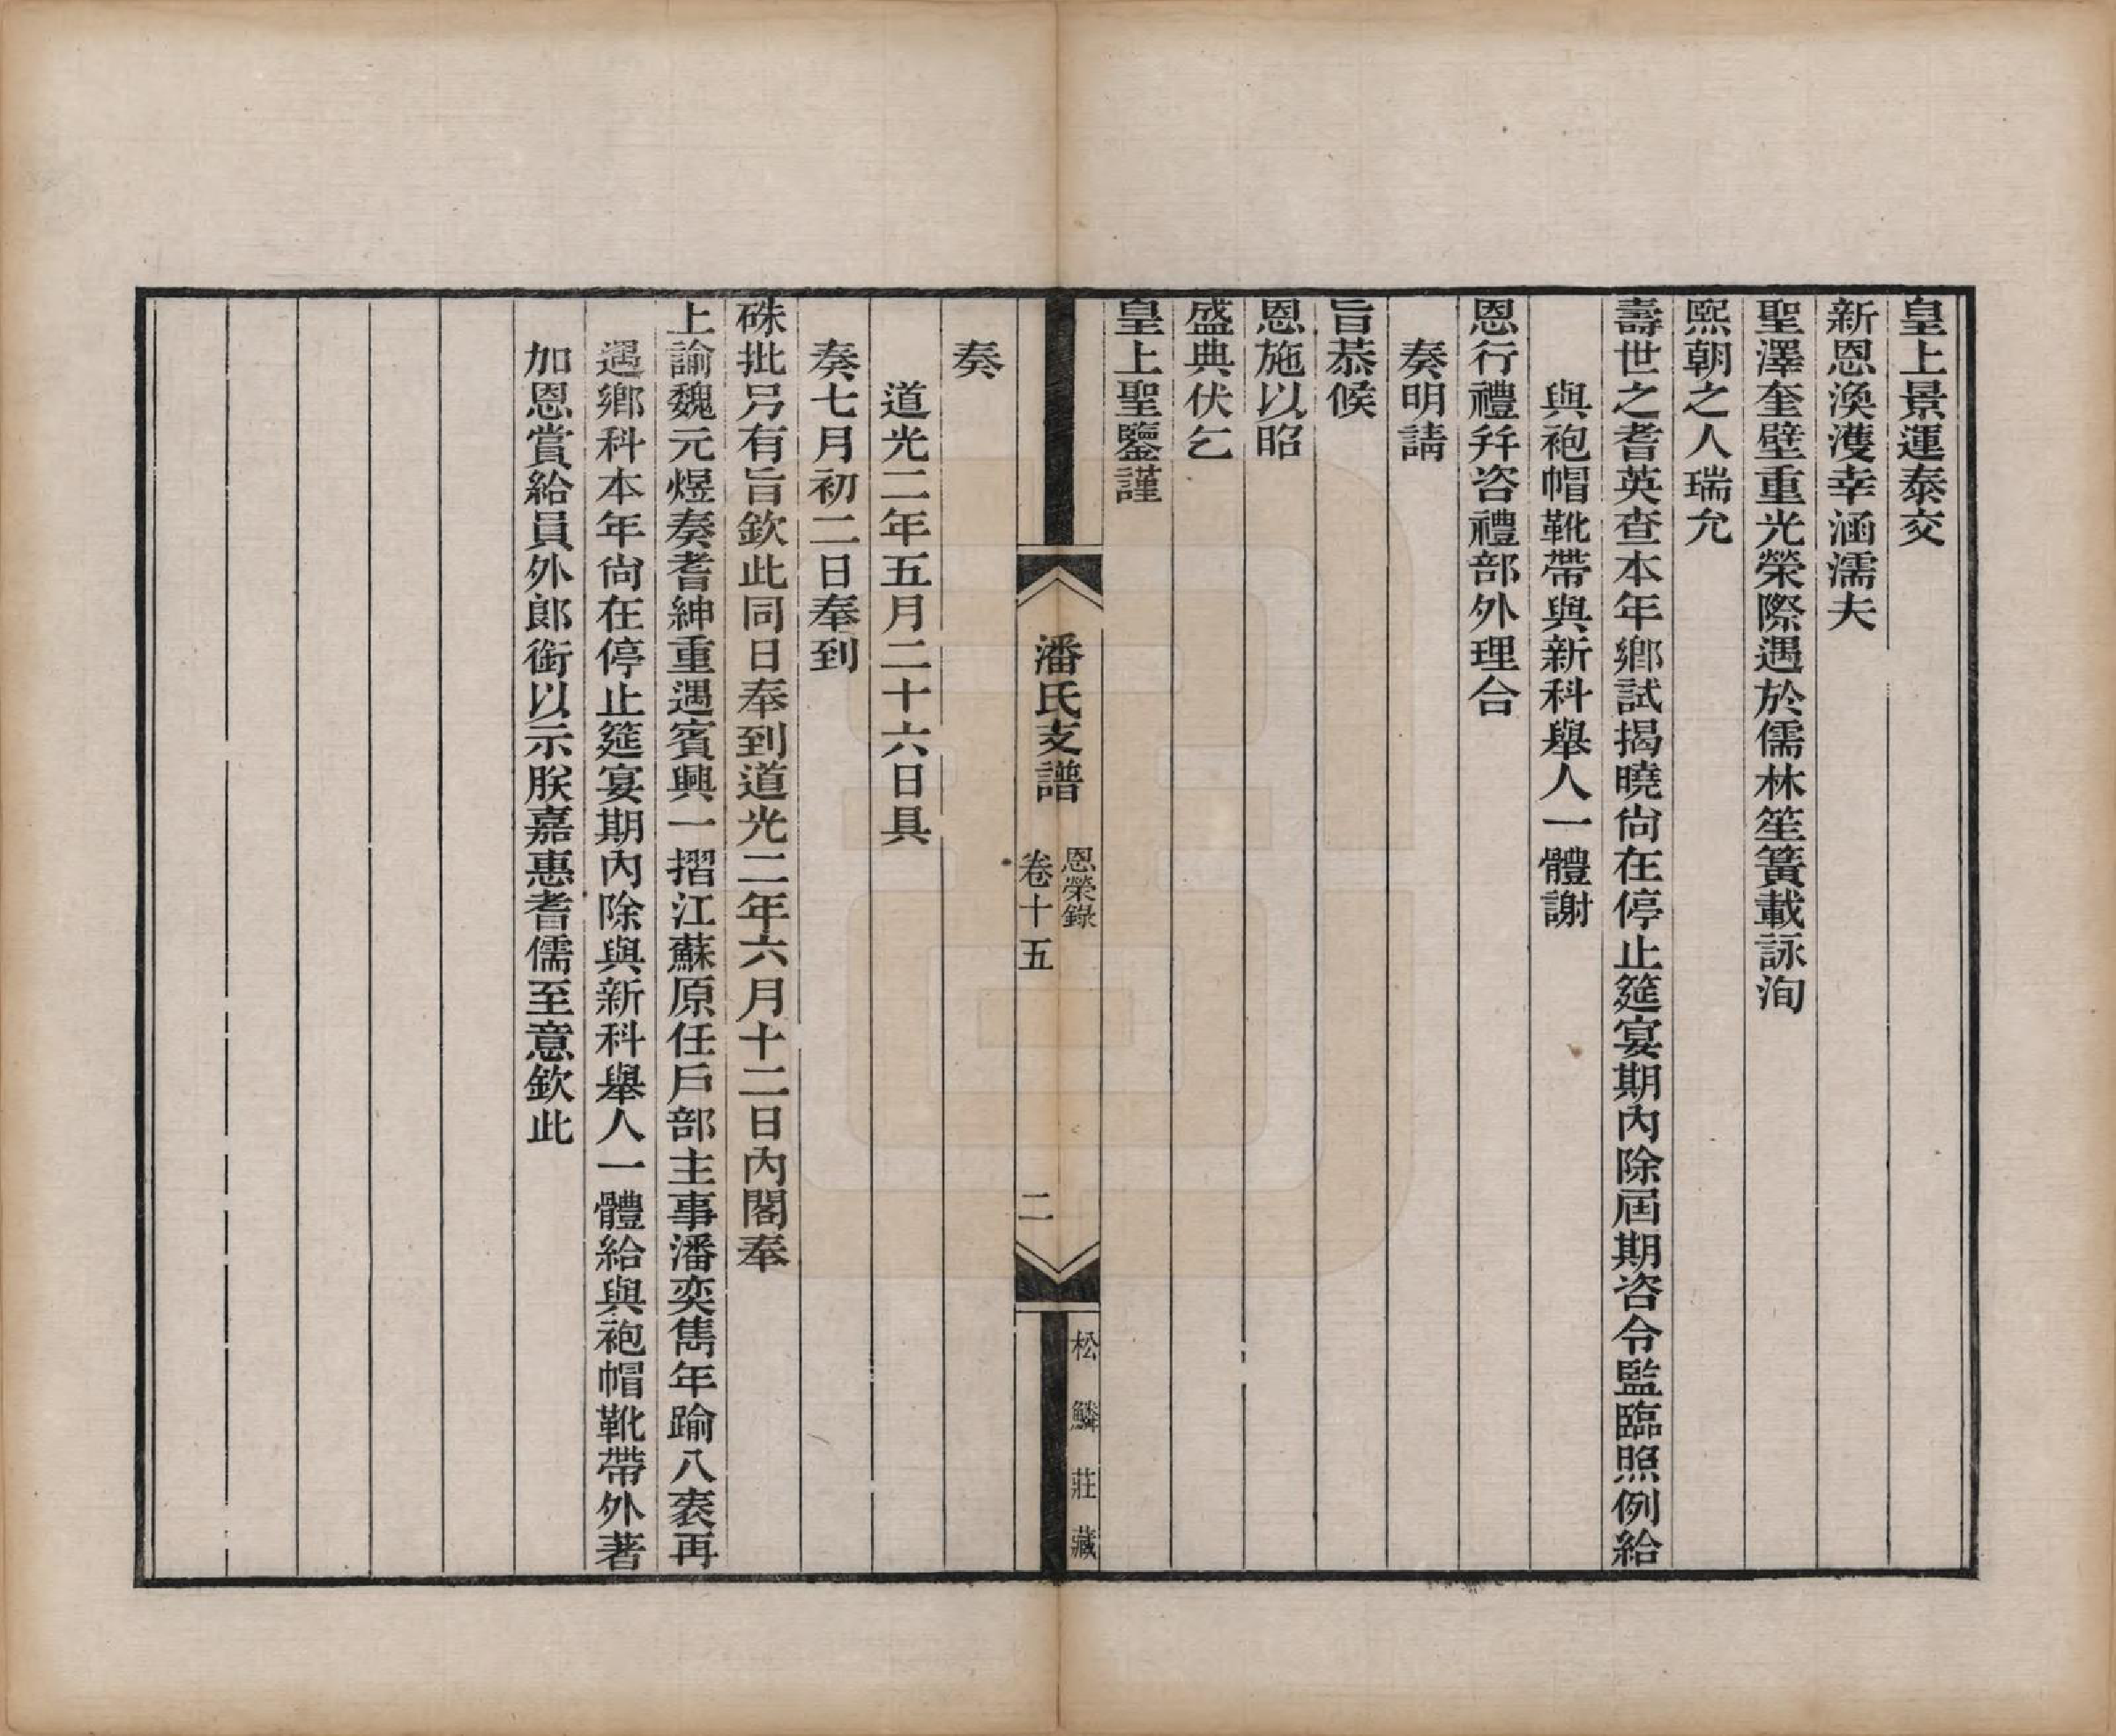 皇上景運泰交
新恩渙濩幸涵濡夫
聖澤奎壁重光榮際遇於儒林笙簧載詠洵
熙朝之人瑞允
壽世之耆英查本年鄉試揭曉尙在停止筵宴期內除屆期咨令監臨照例給
與袍帽靴帶與新科舉人一體謝
恩行禮并咨禮部外理合
奏明請
旨恭候
恩施以昭
盛典伏乞
皇上聖鑒謹
潘氏支譜
恩榮錄
卷十五
二
松鱗莊藏
奏
道光二年五月二十六日具
奏七月初二日奉到
硃批另有旨欽此同日奉到道光二年六月十二日內閣奉
上諭魏元煜奏耆紳重遇賓興一摺江蘇原任戶部主事潘奕雋年踰八袠再
遇鄉科本年尙在停止筵宴期內除與新科舉人一體給與袍帽靴帶外著
加恩賞給員外郎銜以示朕嘉惠耆儒至意欽此